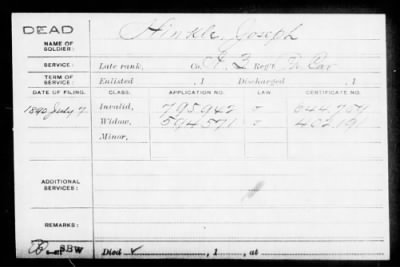 DEAD
NAME OF SOLDIER: Hinkle, Joseph
SERVICE: Late rank, Co. A, 3 Reg't Cav
TERM OF SERVICE: Enlisted , 1 Discharged , 1
DATE OF FILING. CLASS. APPLICATION NO. LAW CERTIFICATE NO.
1890 July 7 Invalid, 795.942 544,754
Widow, 594571 402,191
Minor,
ADDITIONAL SERVICES:
REMARKS:
SBW Died , 1 , at